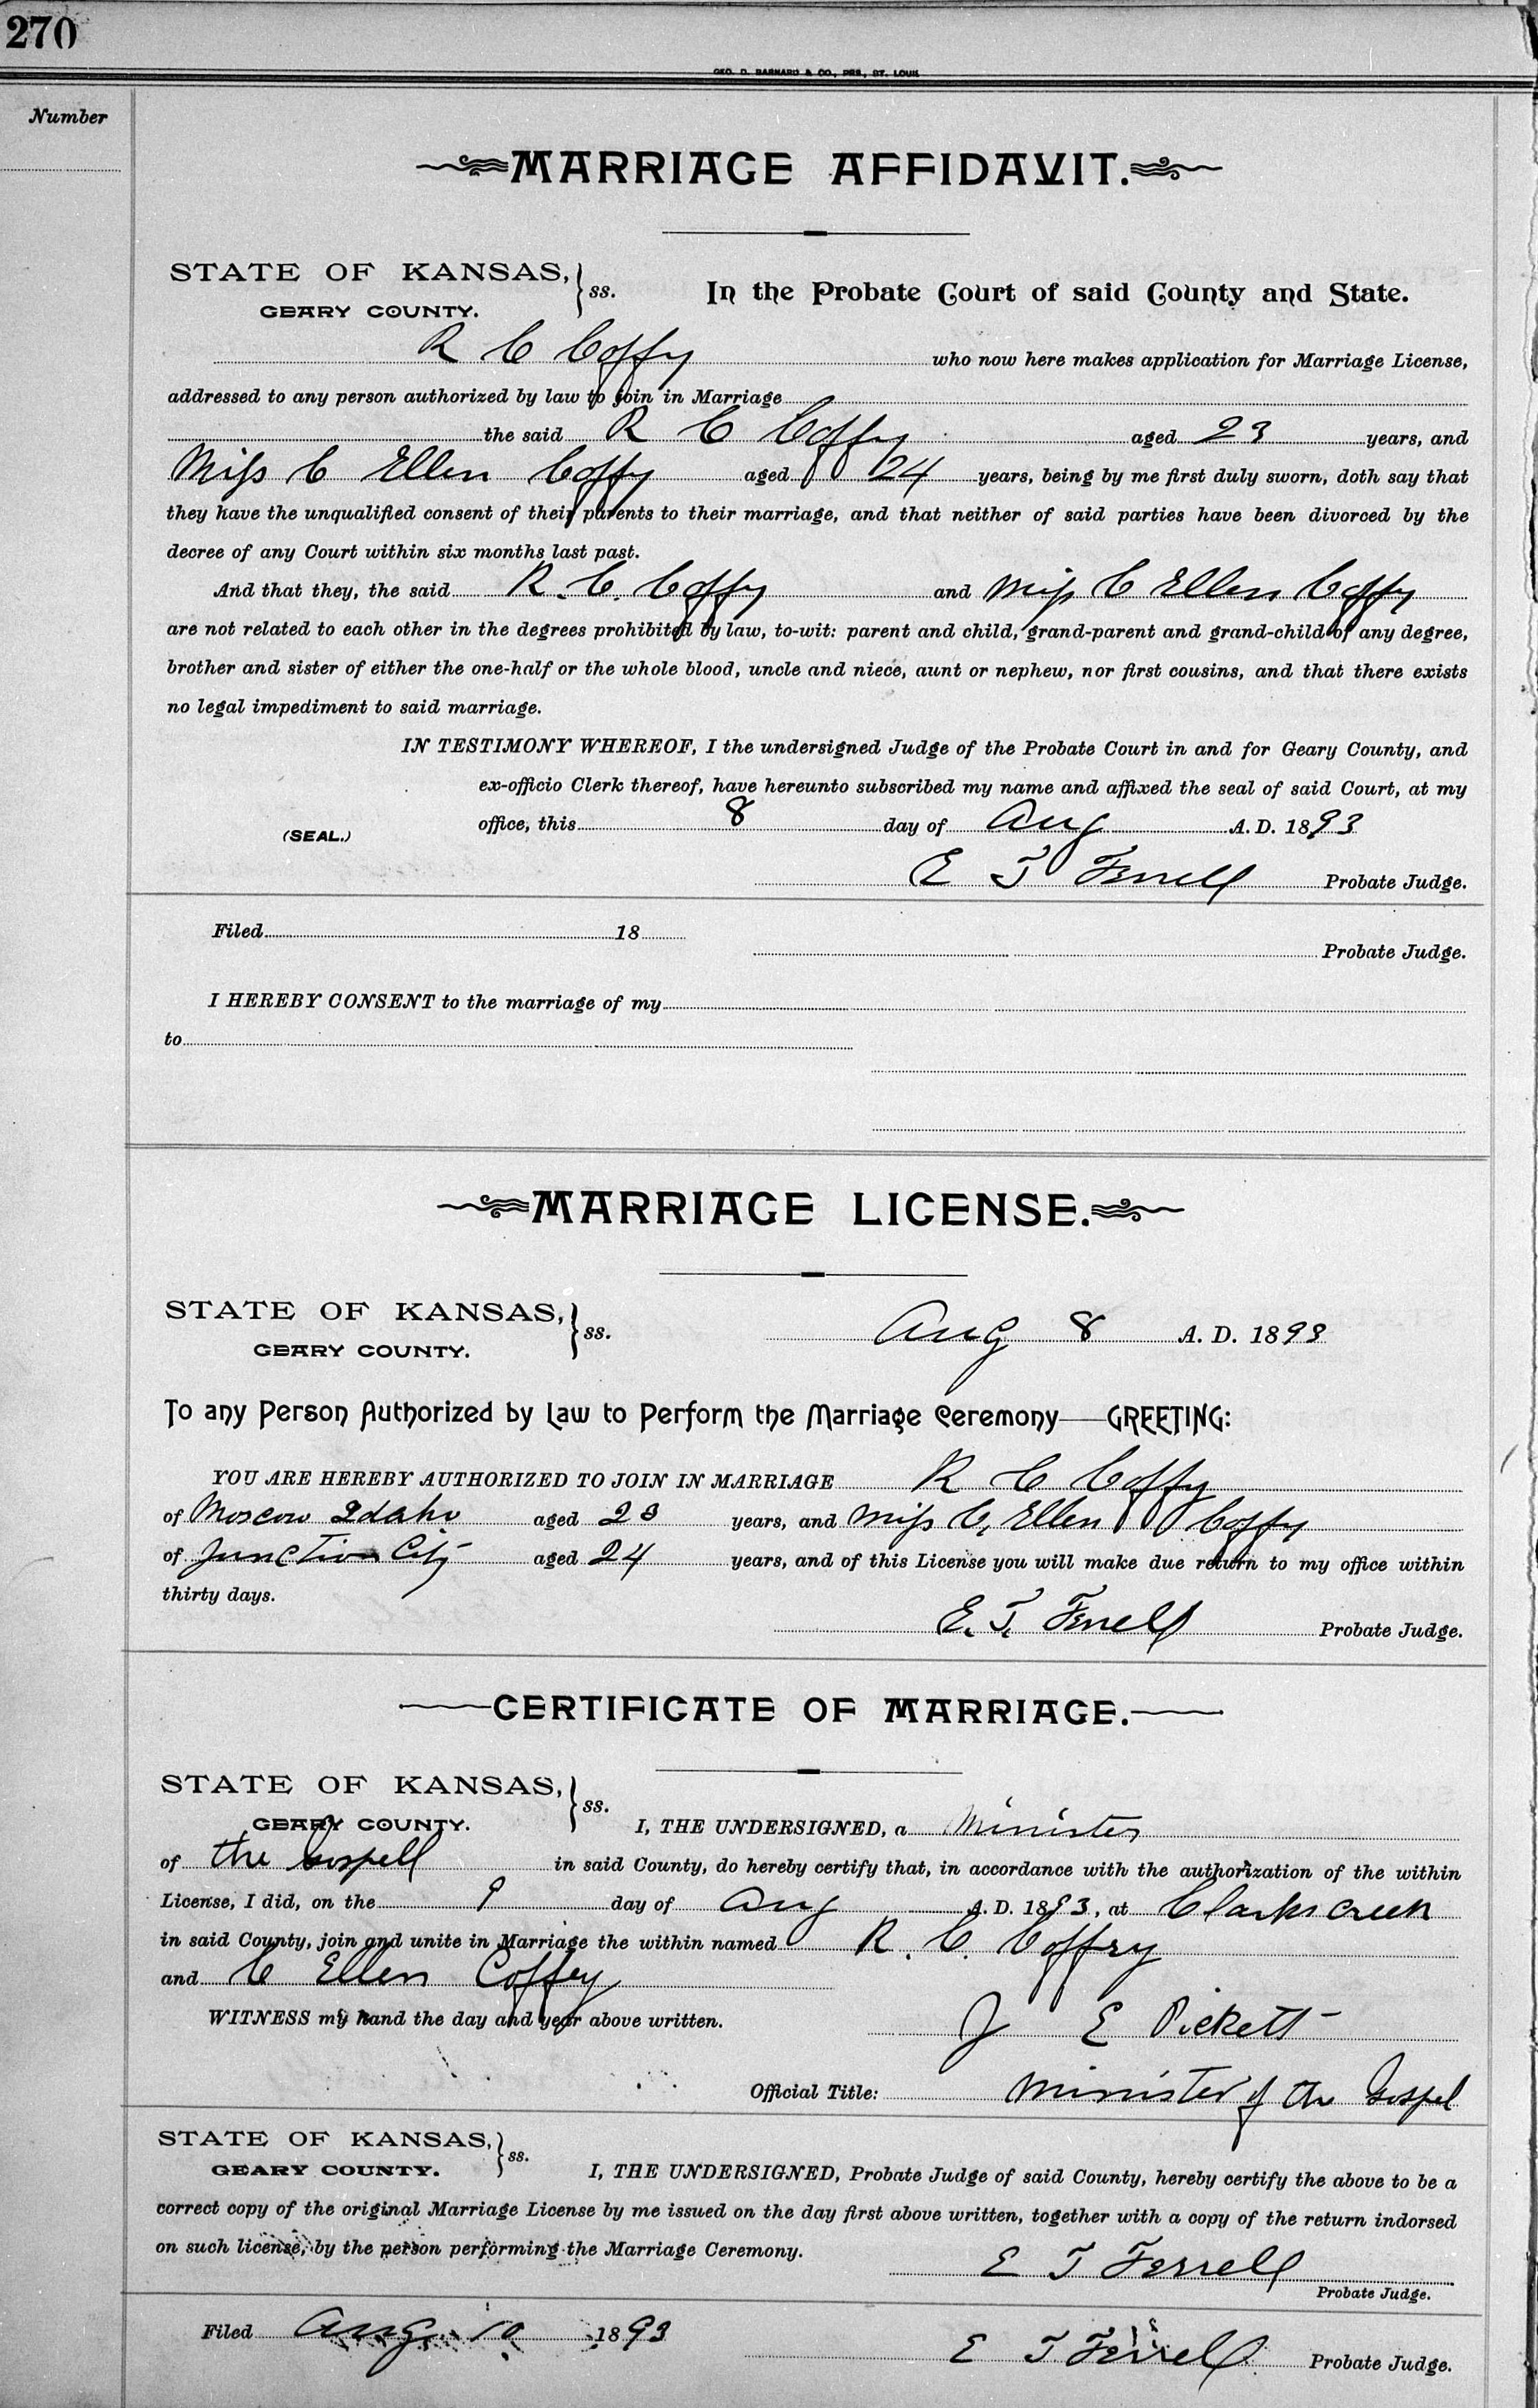 270
GEO. D. BARNARD & CO., PRS., ST. LOUIS
Number
MARRIAGE AFFIDAVIT.
STATE OF KANSAS, GEARY COUNTY. } ss. In the Probate Court of said County and State.
R C Coffy who now here makes application for Marriage License,
addressed to any person authorized by law to join in Marriage
the said R C Coffy aged 23 years, and
Miss C Ellen Coffy aged 24 years, being by me first duly sworn, doth say that
they have the unqualified consent of their parents to their marriage, and that neither of said parties have been divorced by the
decree of any Court within six months last past.
And that they, the said R. C. Coffy and Miss C Ellen Coffy
are not related to each other in the degrees prohibited by law, to-wit: parent and child, grand-parent and grand-child of any degree,
brother and sister of either the one-half or the whole blood, uncle and niece, aunt or nephew, nor first cousins, and that there exists
no legal impediment to said marriage.
IN TESTIMONY WHEREOF, I the undersigned Judge of the Probate Court in and for Geary County, and
ex-officio Clerk thereof, have hereunto subscribed my name and affixed the seal of said Court, at my
(SEAL.) office, this 8 day of Aug A. D. 1893
E T Ferrell Probate Judge.
Filed 18
Probate Judge.
I HEREBY CONSENT to the marriage of my
to
MARRIAGE LICENSE.
STATE OF KANSAS, GEARY COUNTY. } ss. Aug 8 A. D. 1893
To any Person Authorized by Law to Perform the Marriage Ceremony—GREETING:
YOU ARE HEREBY AUTHORIZED TO JOIN IN MARRIAGE R C Coffy
of Moscow Idaho aged 23 years, and Miss C, Ellen Coffy
of Junction City aged 24 years, and of this License you will make due return to my office within
thirty days.
E. T. Ferrell Probate Judge.
CERTIFICATE OF MARRIAGE.
STATE OF KANSAS, GEARY COUNTY. } ss. I, THE UNDERSIGNED, a Minister
of the Gospell in said County, do hereby certify that, in accordance with the authorization of the within
License, I did, on the 9 day of Aug A. D. 1893, at Clarks creek
in said County, join and unite in Marriage the within named R. C. Coffey
and C Ellen Coffey
WITNESS my hand the day and year above written.
J E Pickett
Official Title: Minister of the Gospel
STATE OF KANSAS, GEARY COUNTY. } ss. I, THE UNDERSIGNED, Probate Judge of said County, hereby certify the above to be a
correct copy of the original Marriage License by me issued on the day first above written, together with a copy of the return indorsed
on such license, by the person performing the Marriage Ceremony.
E T Ferrell
Probate Judge.
Filed Aug 10 1893
E T Ferrell Probate Judge.